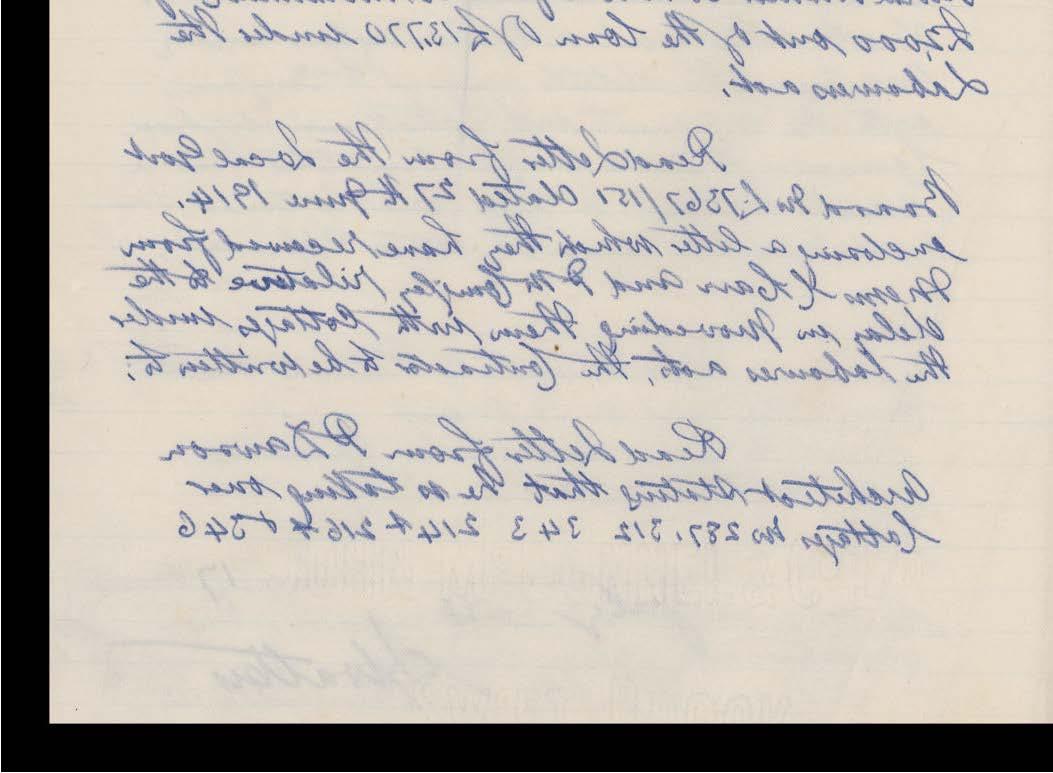 £2,000 out of the loan of £13,770 under the
Labourers act.
Read Letter from the Local Govt
Board No L.7367/151 dated 27th June 1914.
enclosing a letter which they have received from
Messrs and relative to the
delay in providing them with Cottages under
the Labourers act, the Contractor to be written to.
Read Letter from P Dawson
Architect stating that he is taking over
Cottages No 287, 312 343 214 + 216 + 346
17